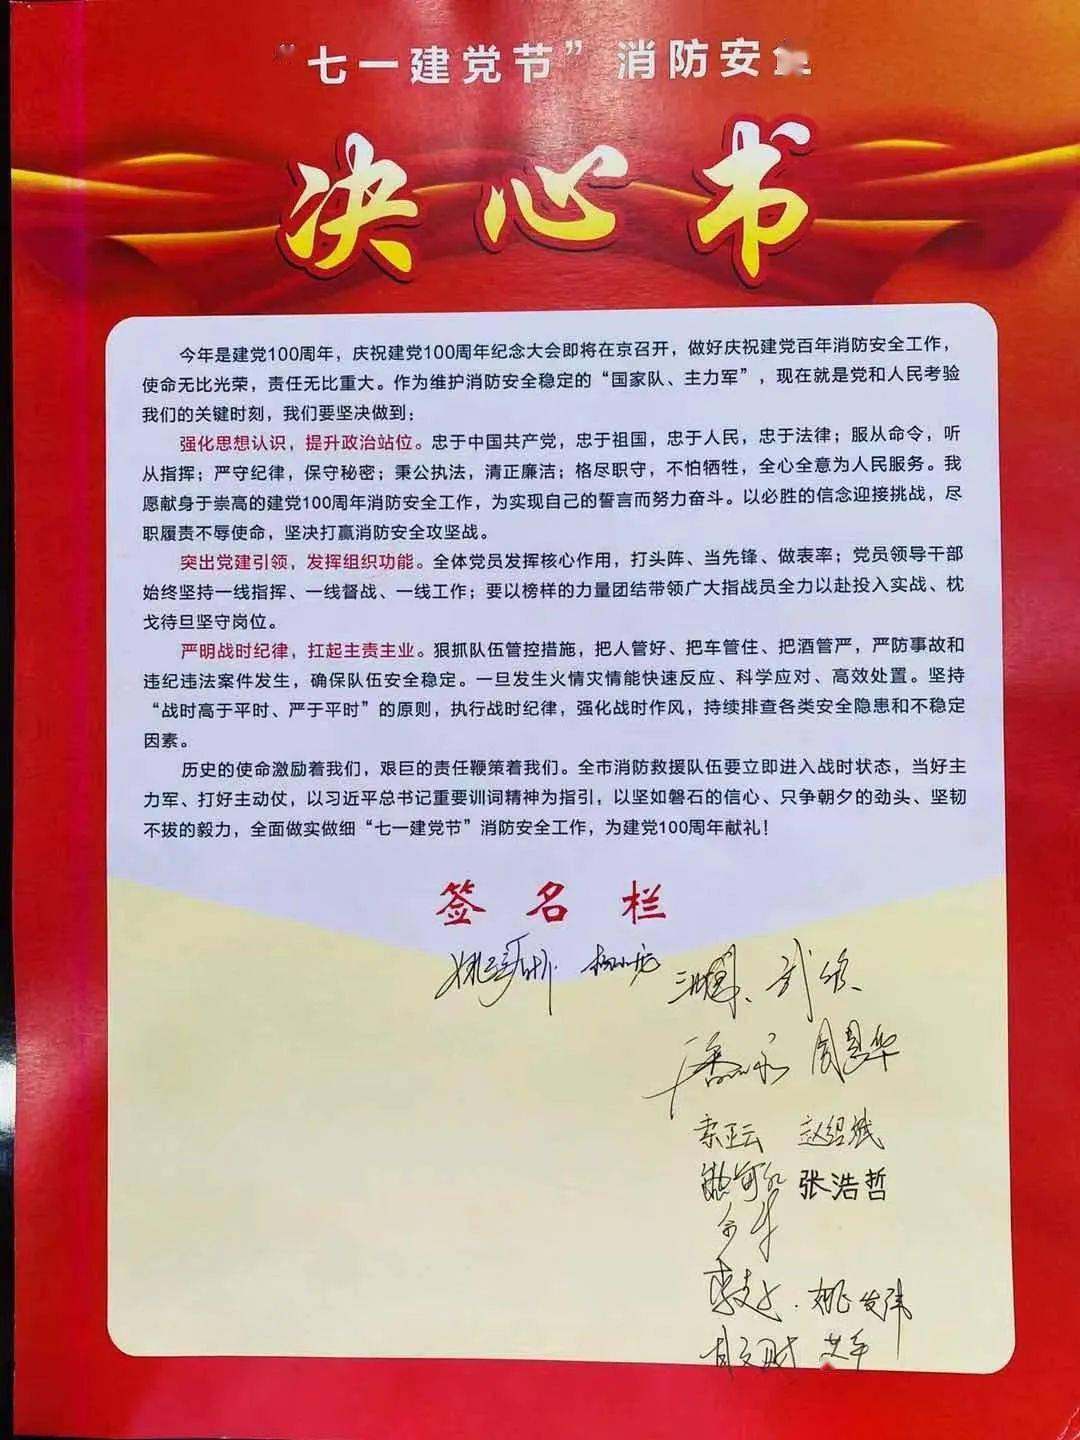 “七一建党节”消防安全
决心书
今年是建党100周年，庆祝建党100周年纪念大会即将在京召开，做好庆祝建党百年消防安全工作，
使命无比光荣，责任无比重大。作为维护消防安全稳定的“国家队、主力军”，现在就是党和人民考验
我们的关键时刻，我们要坚决做到：
强化思想认识，提升政治站位。忠于中国共产党，忠于祖国，忠于人民，忠于法律；服从命令，听
从指挥；严守纪律，保守秘密；秉公执法，清正廉洁；格尽职守，不怕牺牲，全心全意为人民服务。我
愿献身于崇高的建党100周年消防安全工作，为实现自己的誓言而努力奋斗。以必胜的信念迎接挑战，尽
职履责不辱使命，坚决打赢消防安全攻坚战。
突出党建引领，发挥组织功能。全体党员发挥核心作用，打头阵、当先锋、做表率；党员领导干部
始终坚持一线指挥、一线督战、一线工作；要以榜样的力量团结带领广大指战员全力以赴投入实战、枕
戈待旦坚守岗位。
严明战时纪律，扛起主责主业。狠抓队伍管控措施，把人管好、把车管住、把酒管严，严防事故和
违纪违法案件发生，确保队伍安全稳定。一旦发生火情灾情能快速反应、科学应对、高效处置。坚持
“战时高于平时、严于平时”的原则，执行战时纪律，强化战时作风，持续排查各类安全隐患和不稳定
因素。
历史的使命激励着我们，艰巨的责任鞭策着我们。全市消防救援队伍要立即进入战时状态，当好主
力军、打好主动仗，以习近平总书记重要训词精神为指引，以坚如磐石的信心、只争朝夕的劲头、坚韧
不拔的毅力，全面做实做细“七一建党节”消防安全工作，为建党100周年献礼！
签名栏
杨小龙
赵绍斌
张浩哲